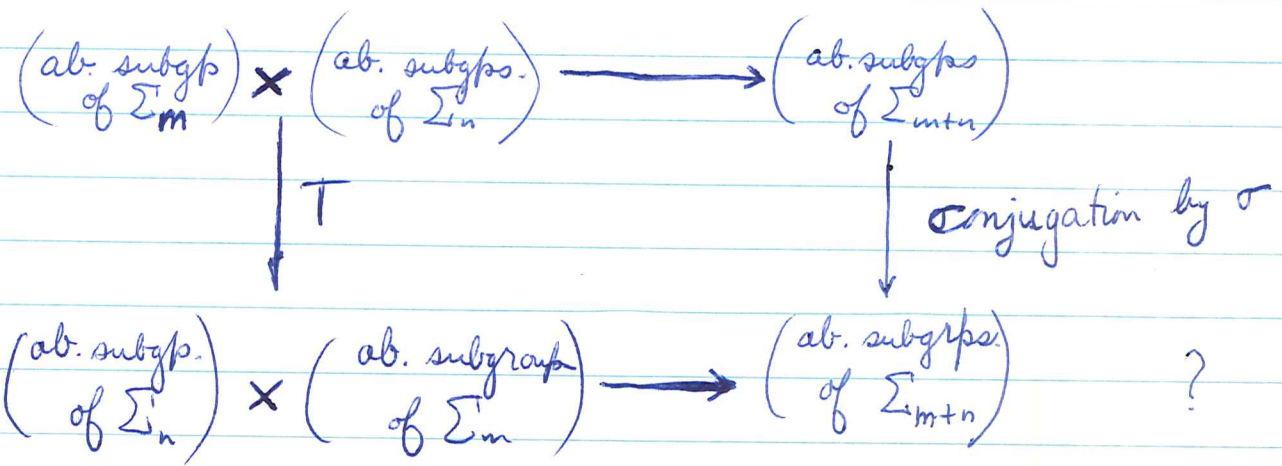 (ab. subgp of Σ_m) × (ab. subgps. of Σ_n) ⟶ (ab. subgps of Σ_{m+n})
T
conjugation by σ
(ab. subgp. of Σ_n) × (ab. subgroup of Σ_m) ⟶ (ab. subgrps. of Σ_{m+n}) ?